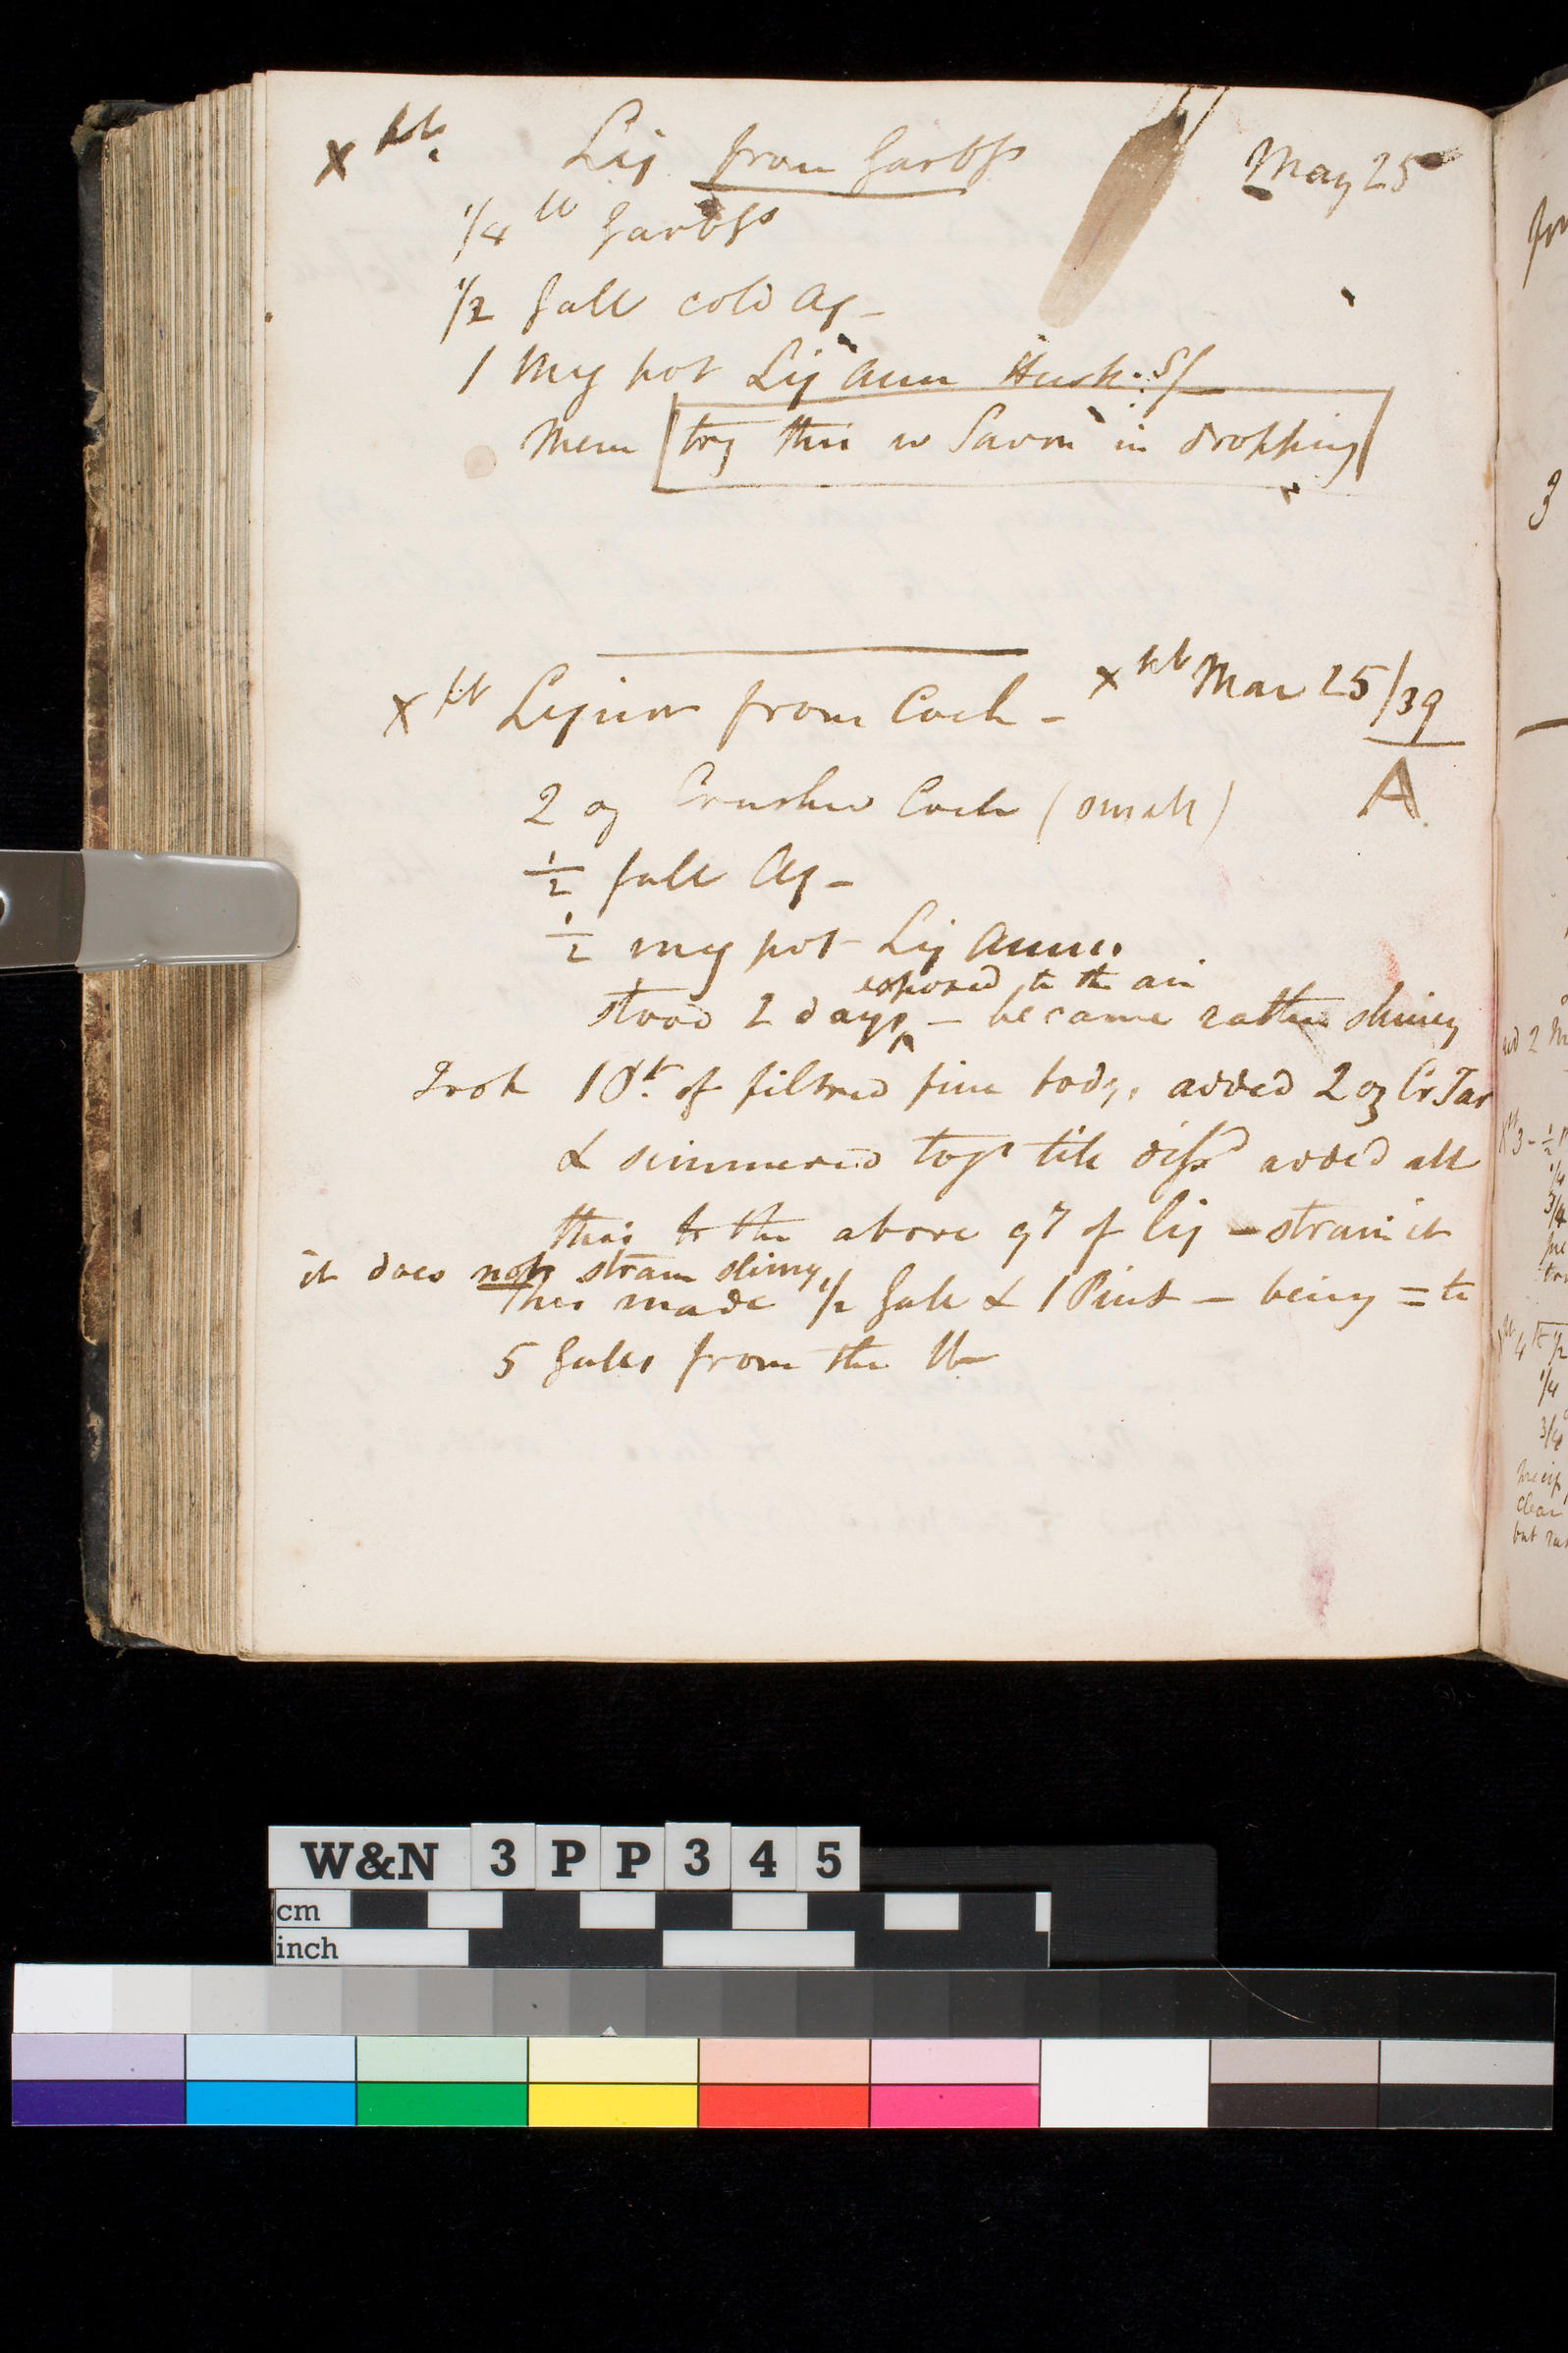 X pt. Liq from Garbgs May 25
1/4 lb Garbgs
1/2 Gall cold Aq -
1 mg pot Liq Amm Husk. Sf
Mem try this w Savon in dropping
X pt Liquor from Coch - X pt Mar 25/39
A
2 oz Crushed Coch (small)
1/2 Gall Aq -
1/2 mg pot Liq Amm.
exposed to the air
stood 2 days - became rather slimey
Took 1 Qt. of filtred fine body, added 2 oz Cr Tar
& simmered togr till dissd added all
this to the above qy of liq - strain it
it does not strain slimy
This made 1/2 Gall & 1 Pint - being = to
5 Galls from the lb
W&N 3 P P 3 4 5
cm
inch